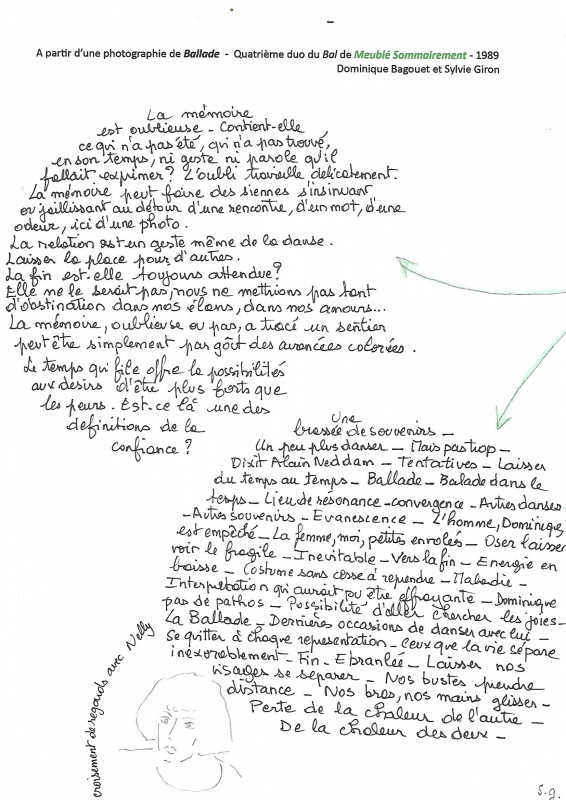 A partir d'une photographie de Ballade - Quatrième duo du Bal de Meublé Sommairement - 1989
Dominique Bagouet et Sylvie Giron
La mémoire
est oublieuse - Contient-elle
ce qui n'a pas été, qui n'a pas trouvé,
en son temps, ni geste ni parole qu'il
fallait exprimer ? L'oubli travaille délicatement.
La mémoire peut faire des siennes s'insinuant
ou jaillissant au détour d'une rencontre, d'un mot, d'une
odeur, ici d'une photo.
La relation est un geste même de la danse.
Laisser la place pour d'autres.
La fin est-elle toujours attendue ?
Elle ne le serait pas, nous ne mettrions pas tant
d'obstination dans nos élans, dans nos amours...
La mémoire, oublieuse ou pas, a tracé un sentier
peut être simplement par goût des avancées colorées.
Le temps qui file offre la possibilités
aux désirs d'être plus forts que
les peurs. Est-ce là une des
définitions de la
confiance ?
Une
brassée de souvenirs -
Un peu plus danser - Mais pas trop -
Dixit Alain Neddam - Tentatives - Laisser
du temps au temps - Ballade - Balade dans le
temps - Lieu de résonance - convergence - Autres danses
- Autres souvenirs - Evanescence - L'homme, Dominique,
est empêché - La femme, moi, petites envolées - Oser laisser
voir le fragile - Inévitable - Vers la fin - Energie en
baisse - Costume sans cesse à reprendre - Maladie -
Interprétation qui aurait pu être effrayante - Dominique
pas de pathos - Possibilité d'aller chercher les joies -
La Ballade - Dernières occasions de danser avec lui -
Se quitter à chaque représentation - ceux que la vie sépare
inexorablement - Fin - Ebranlée - Laisser nos
visages se séparer - Nos bustes prendre
distance - Nos bras, nos mains glisser -
Perte de la chaleur de l'autre -
De la chaleur des deux -
croisement de regards avec Nelly
S.g.